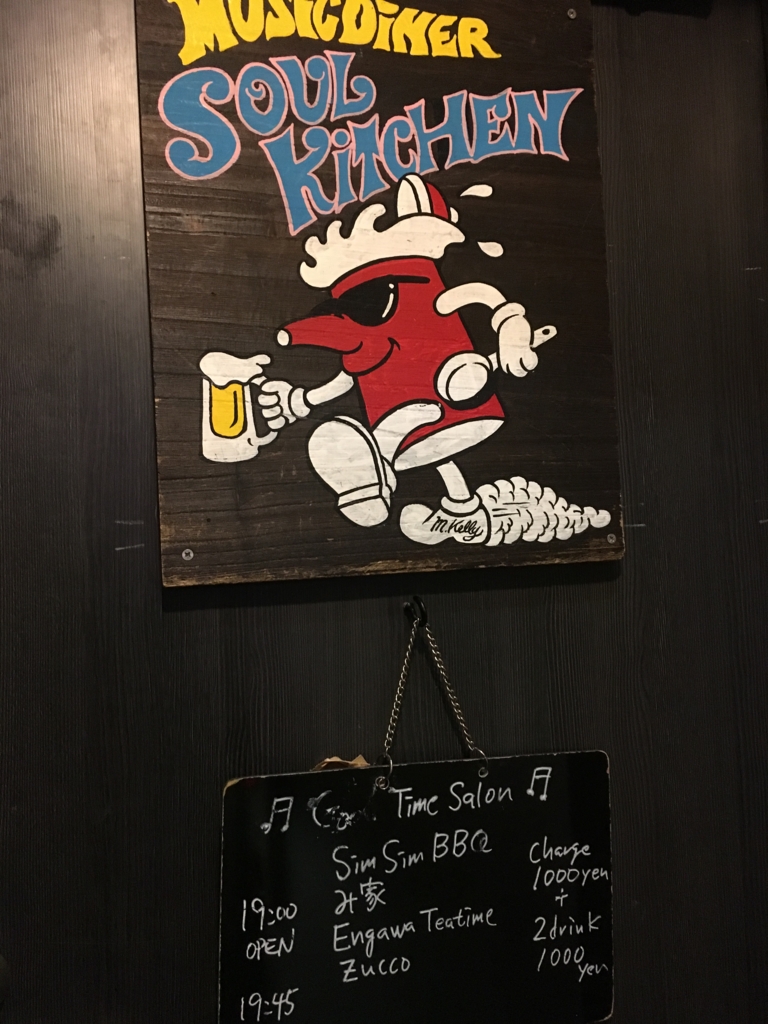 MUSIC DINER
SOUL
KITCHEN
M. Kelly
Time Salon
Sim Sim BBQ
み家
Engawa Teatime
Zucco
19:00
OPEN
19:45
Charge
1000yen
+
2drink
1000
yen